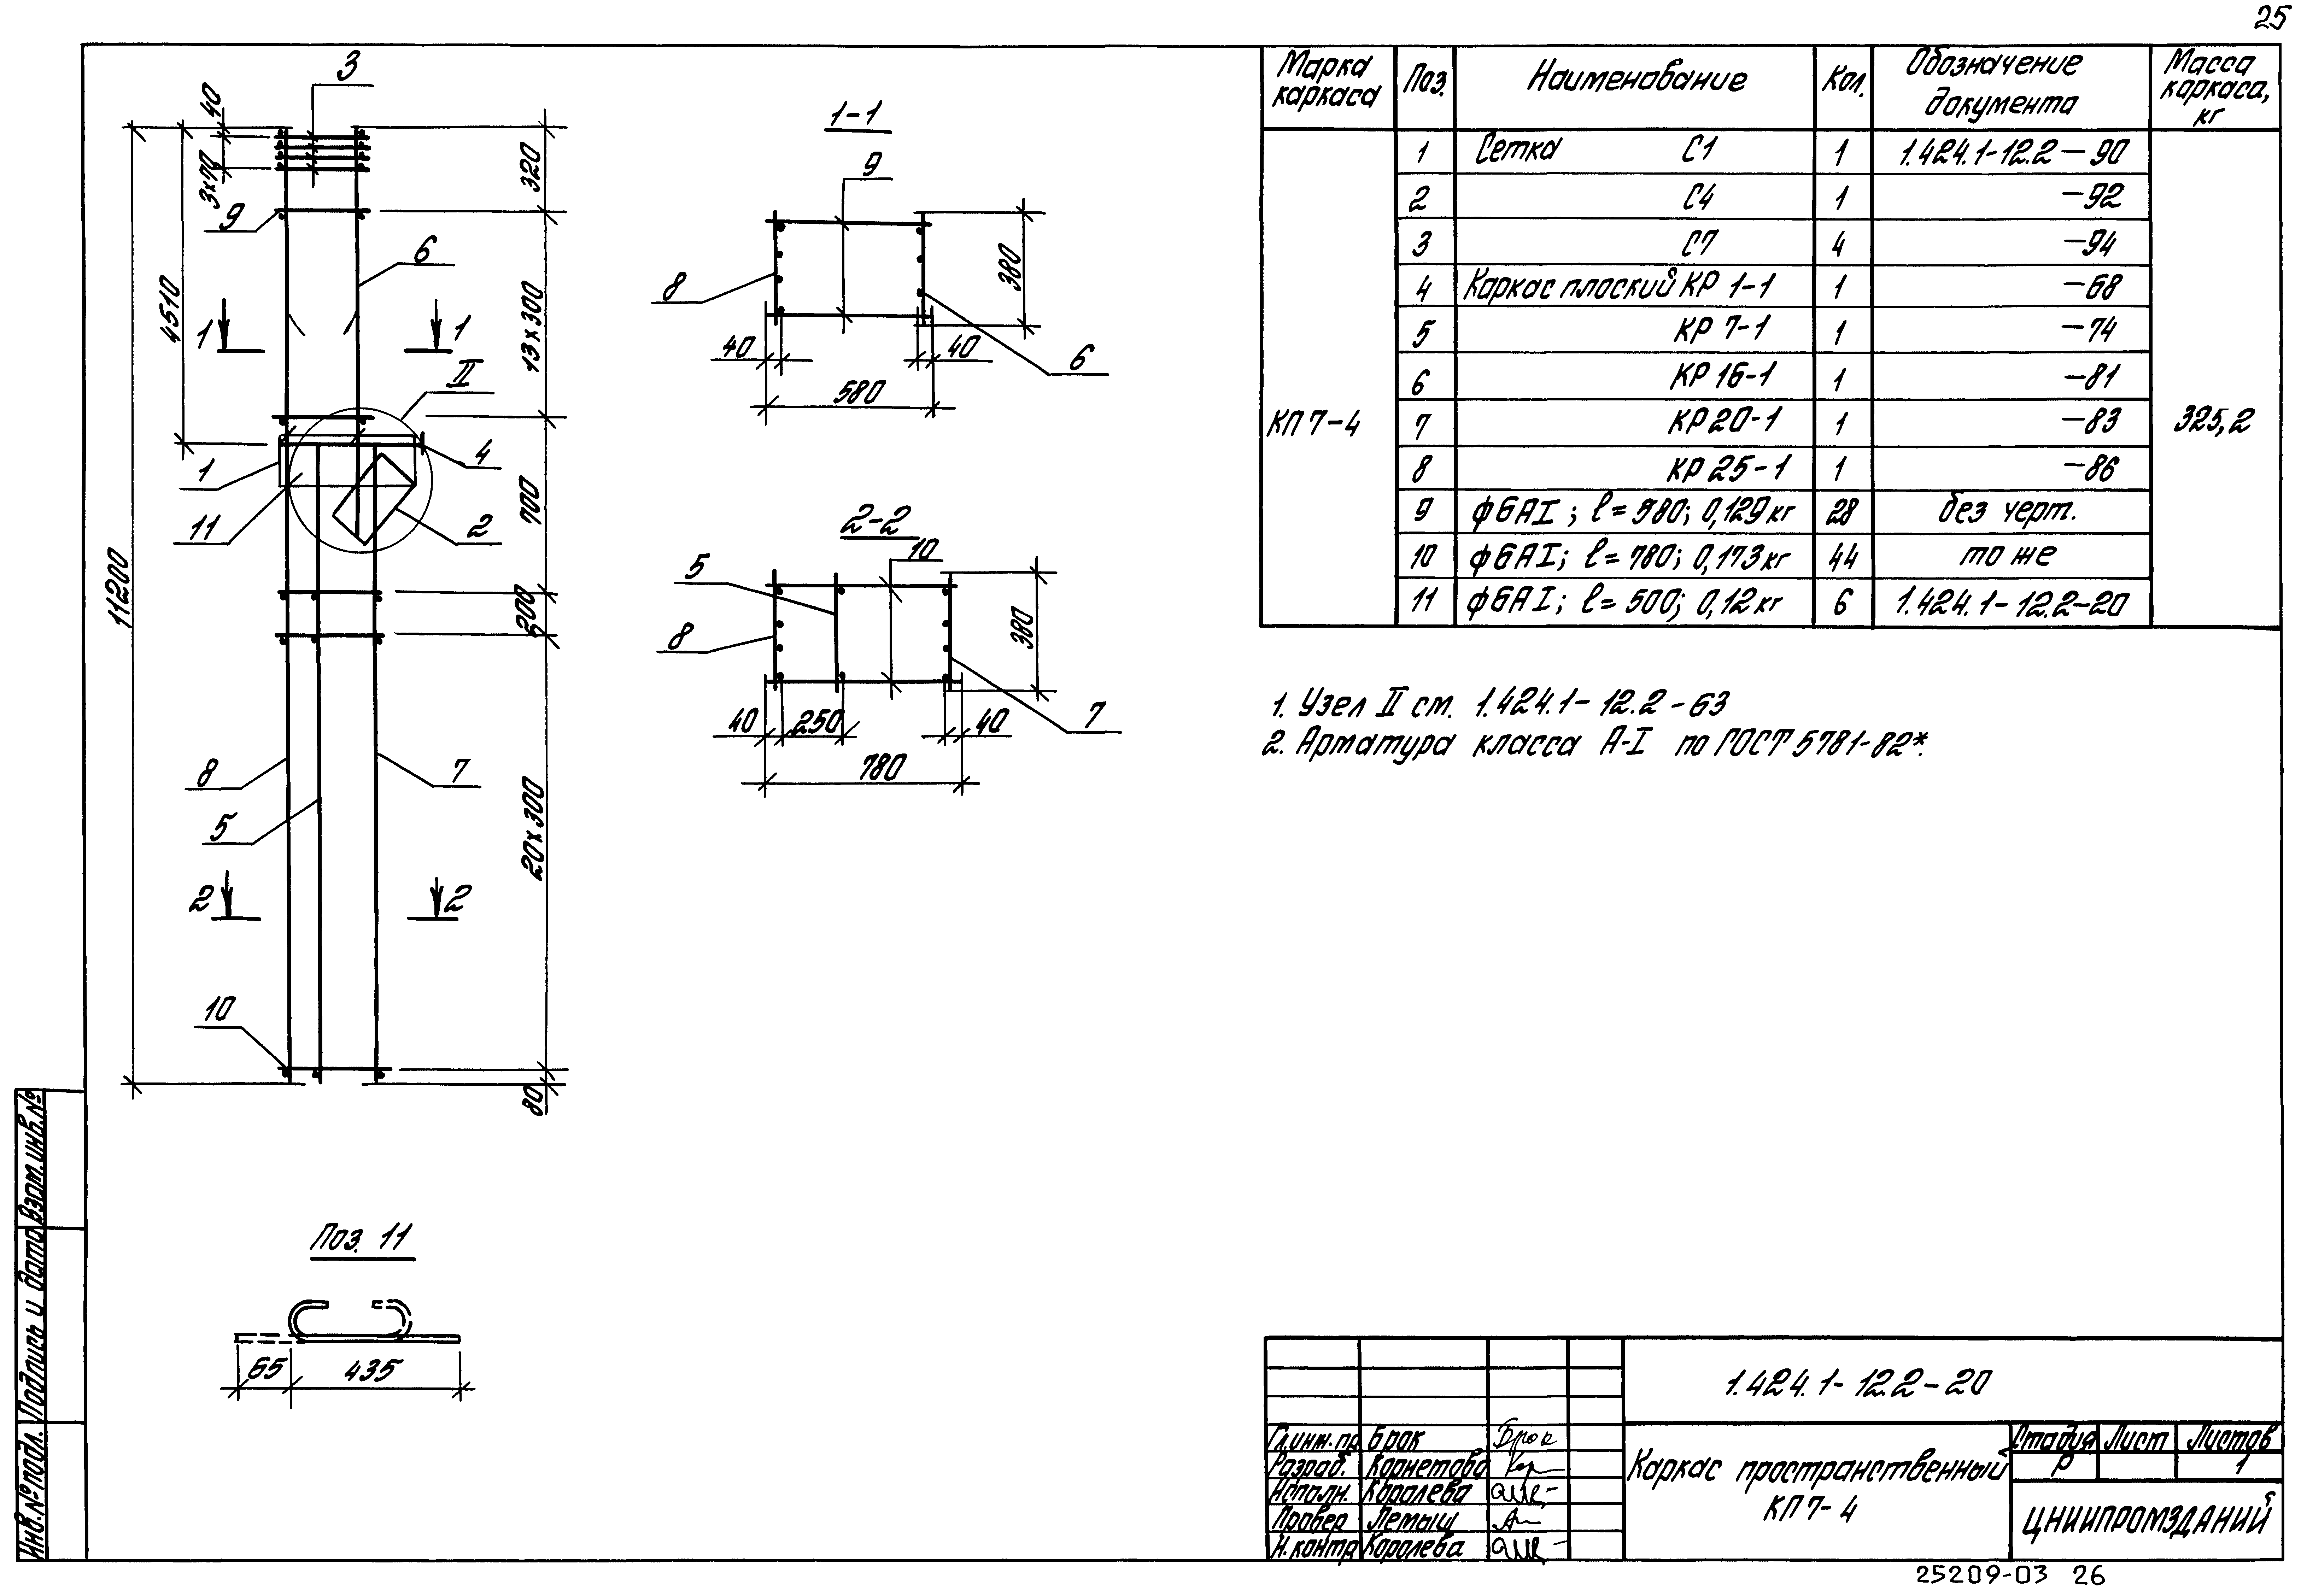 25
Марка каркаса
Поз.
Наименование
Кол.
Обозначение документа
Масса каркаса, кг
КП 7-4
1 Сетка С1 1 1.424.1-12.2-90
2 С4 1 -92
3 С7 4 -94
4 Каркас плоский КР 1-1 1 -68
5 КР 7-1 1 -74
6 КР 16-1 1 -81
7 КР 20-1 1 -83
8 КР 25-1 1 -86
9 ф6АI; ℓ=580; 0,129кг 28 без черт.
10 ф6АI; ℓ=780; 0,173кг 44 то же
11 ф6АI; ℓ=500; 0,12кг 6 1.424.1-12.2-20
325,2
1. Узел II см. 1.424.1-12.2-63
2. Арматура класса А-I по ГОСТ 5781-82*.
3
40
3×70
9
4510
6
320
13×300
1
1
II
4
1
11
2
700
11200
500
8
7
5
20×300
2
2
10
80
1-1
9
8
380
40
40
6
580
2-2
10
5
8
380
40
250
40
7
780
Поз. 11
65
435
Инв.№подл.
Подпись и дата
Взам.инв.№
1.424.1-12.2-20
Гл.инж.пр Брок
Разраб. Корнетова
Исполн. Королева
Провер Лемыш
Н.контр Королева
Каркас пространственный
КП 7-4
Стадия Лист Листов
Р 1
ЦНИИПРОМЗДАНИЙ
25209-03 26